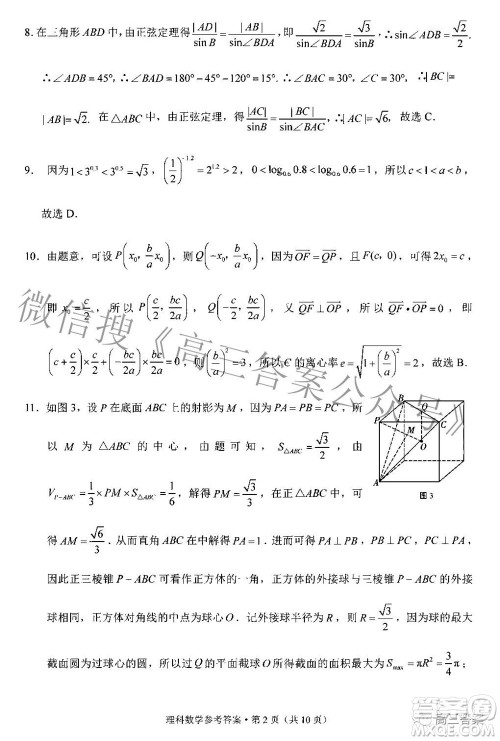 8. 在三角形 ABD 中，由正弦定理得 |AD|/sinB = |AB|/sin∠BDA，即 √2/sinB = √3/sin∠BDA，∴sin∠BDA = √2/2.
∴∠ADB = 45°，∴∠BAD = 180° − 45° − 60° = 75°，∴∠BAC = 30°，∠C = 90°，∴
|AB| = √2. 在△ABC 中，由正弦定理，得 |AC|/sinB = |BC|/sin∠BAC，∴|AC| = ，故选 C.
9. 因为 1 < 3^0.3 < 3^0.5 = √3，(1/2)^−1.2 = 2^1.2 > 2，0 < log_0.6 0.8 < log_0.6 0.6 = 1，所以 c < 1 < a < b，
故选 D.
10. 由题意，可设 P(x₀, b/a x₀)，则 Q(−x₀, b/a x₀)，因为 OF = QP，且 F(c, 0)，可得 2x₀ = c，
即 x₀ = c/2，所以 P(c/2, bc/2a)，Q(−c/2, bc/2a)，又 OP，所以 OP = 0，即
(c + c/2) × c/2 + (−bc/2a) × bc/2a = 0，则 (b/a)² = 3，所以 C 的离心率 e = √(1 + (b/a)²) = 2，故选 B.
11. 如图 3，设 P 在底面 ABC 上的射影为 M，因为 PA = PB = PC，所
以 M 为△ABC 的中心，由题可知，S△ABC = √3/2，由
V_P−ABC = 1/3 × PM × S△ABC，解得 PM = √3/3，在正△ABC 中，可
得 AM = √6/3. 从而直角 ABC 中在 PA = 1. 可得 PA⊥PB，PA⊥PC，PB⊥PC，
因此正三棱锥 P − ABC 可看作正方体的一角，正方体的外接球与三棱锥 P − ABC 的外接球
相同，正方体对角线的中点为球心 O. 记外接球半径为 R，则 R = √3/2，所以球大的
截面圆为过球心的圆，所以过 Q 的平面截球 O 所得截面的面积最大为 S_max = πR² = 3/4 π，
B
Q
P
C
M
O
A
图 3
理科数学参考答案・第 2 页（共 10 页）
微信搜《高三答案公众号》
高三答案